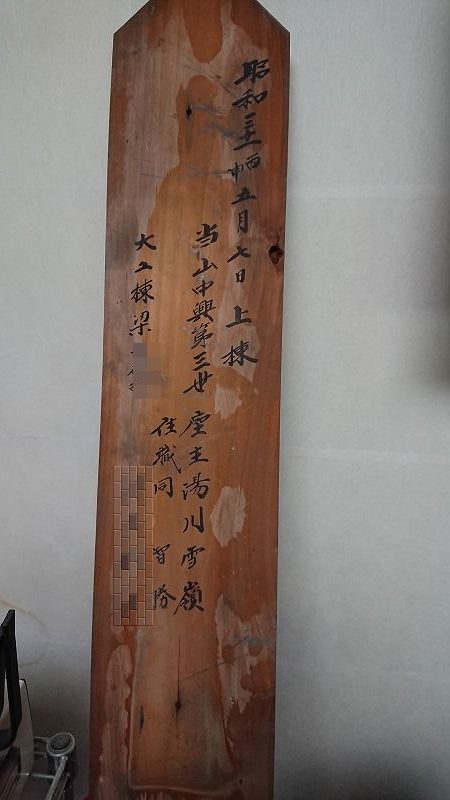 昭和三十一丙申五月七日上棟
当山中興第三世 堂主湯川雪嶺
住職同 智勝
大工棟梁